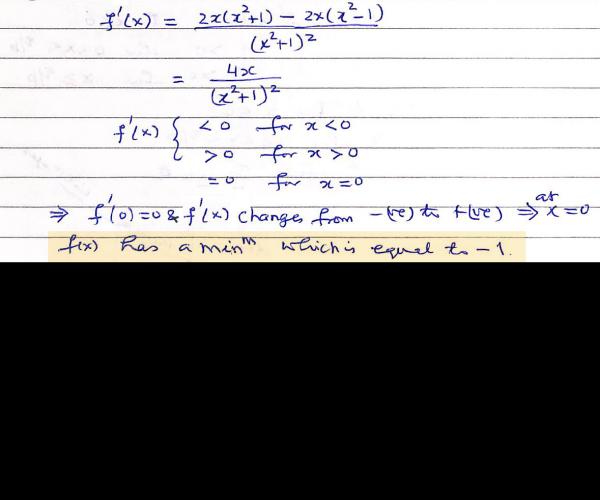 f'(x) = 2x(x²+1) - 2x(x²-1) / (x²+1)²
= 4x / (x²+1)²
f'(x) { < 0 for x < 0
> 0 for x > 0
= 0 for x = 0
⇒ f'(0) = 0 & f'(x) changes from -(ve) to +(ve) ⇒ at x = 0
f(x) has a minᵐ which is equal to -1.